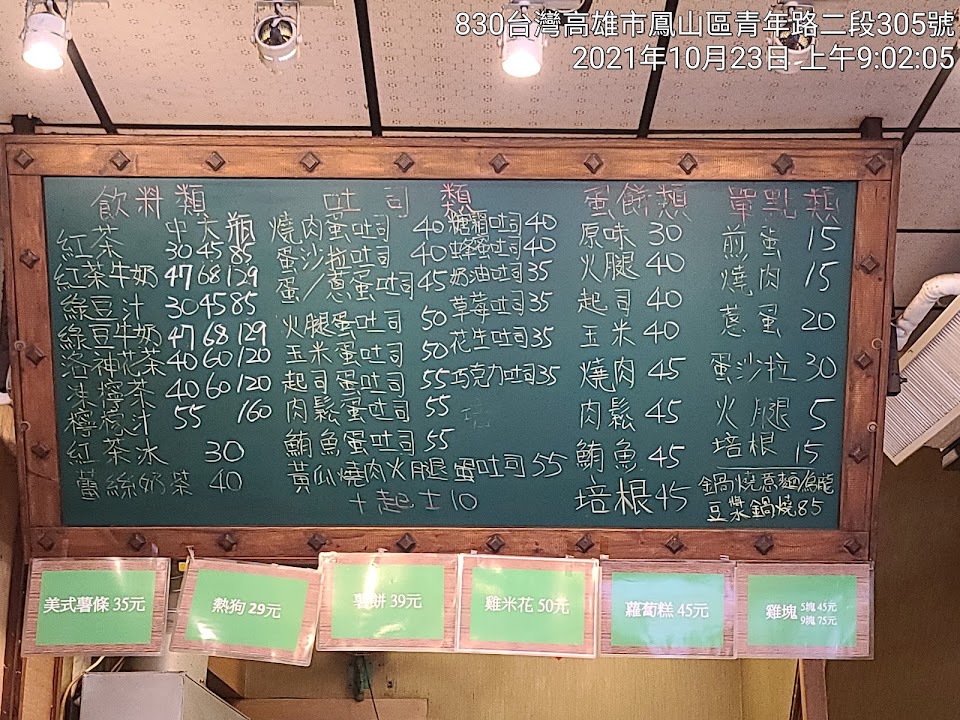 830台灣高雄市鳳山區青年路二段305號
2021年10月23日 上午9:02:05
飲料類
中 大 瓶
紅茶 30 45 85
紅茶牛奶 47 68 129
綠豆汁 30 45 85
綠豆牛奶 47 68 129
洛神花茶 40 60 120
凍檸茶 40 60 120
檸檬汁 55 160
紅茶冰 30
蕾絲奶茶 40
吐司類
燒肉蛋吐司 40
蛋沙拉吐司 40
蛋/蔥蛋吐司 45
火腿蛋吐司 50
玉米蛋吐司 50
起司蛋吐司 55
肉鬆蛋吐司 55
鮪魚蛋吐司 55
黃瓜燒肉火腿蛋吐司 55
+起士10
吐司40
吐司40
奶油吐司35
草莓吐司35
花生吐司35
巧克力吐司35
蛋餅類
原味 30
火腿 40
起司 40
玉米 40
燒肉 45
肉鬆 45
鮪魚 45
培根 45
單點類
煎蛋 15
燒肉 15
蔥蛋 20
蛋沙拉 30
火腿 5
培根 15
鍋燒意麵/烏龍
豆漿鍋燒85
美式薯條 35元
熱狗 29元
薯餅 39元
雞米花 50元
蘿蔔糕 45元
雞塊 5塊 45元
9塊 75元